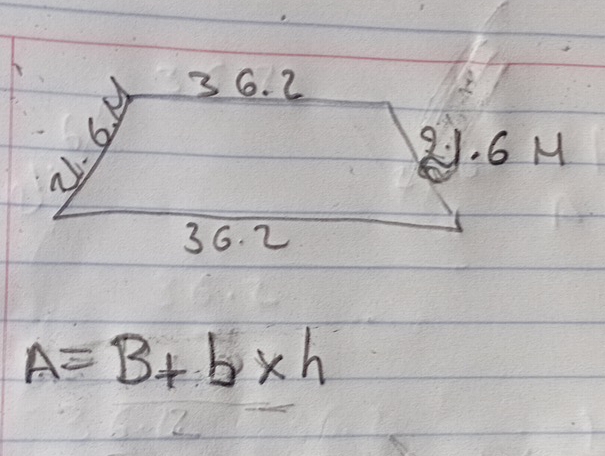 36.2
21.6 M
21.6 M
36.2
A = B + b x h